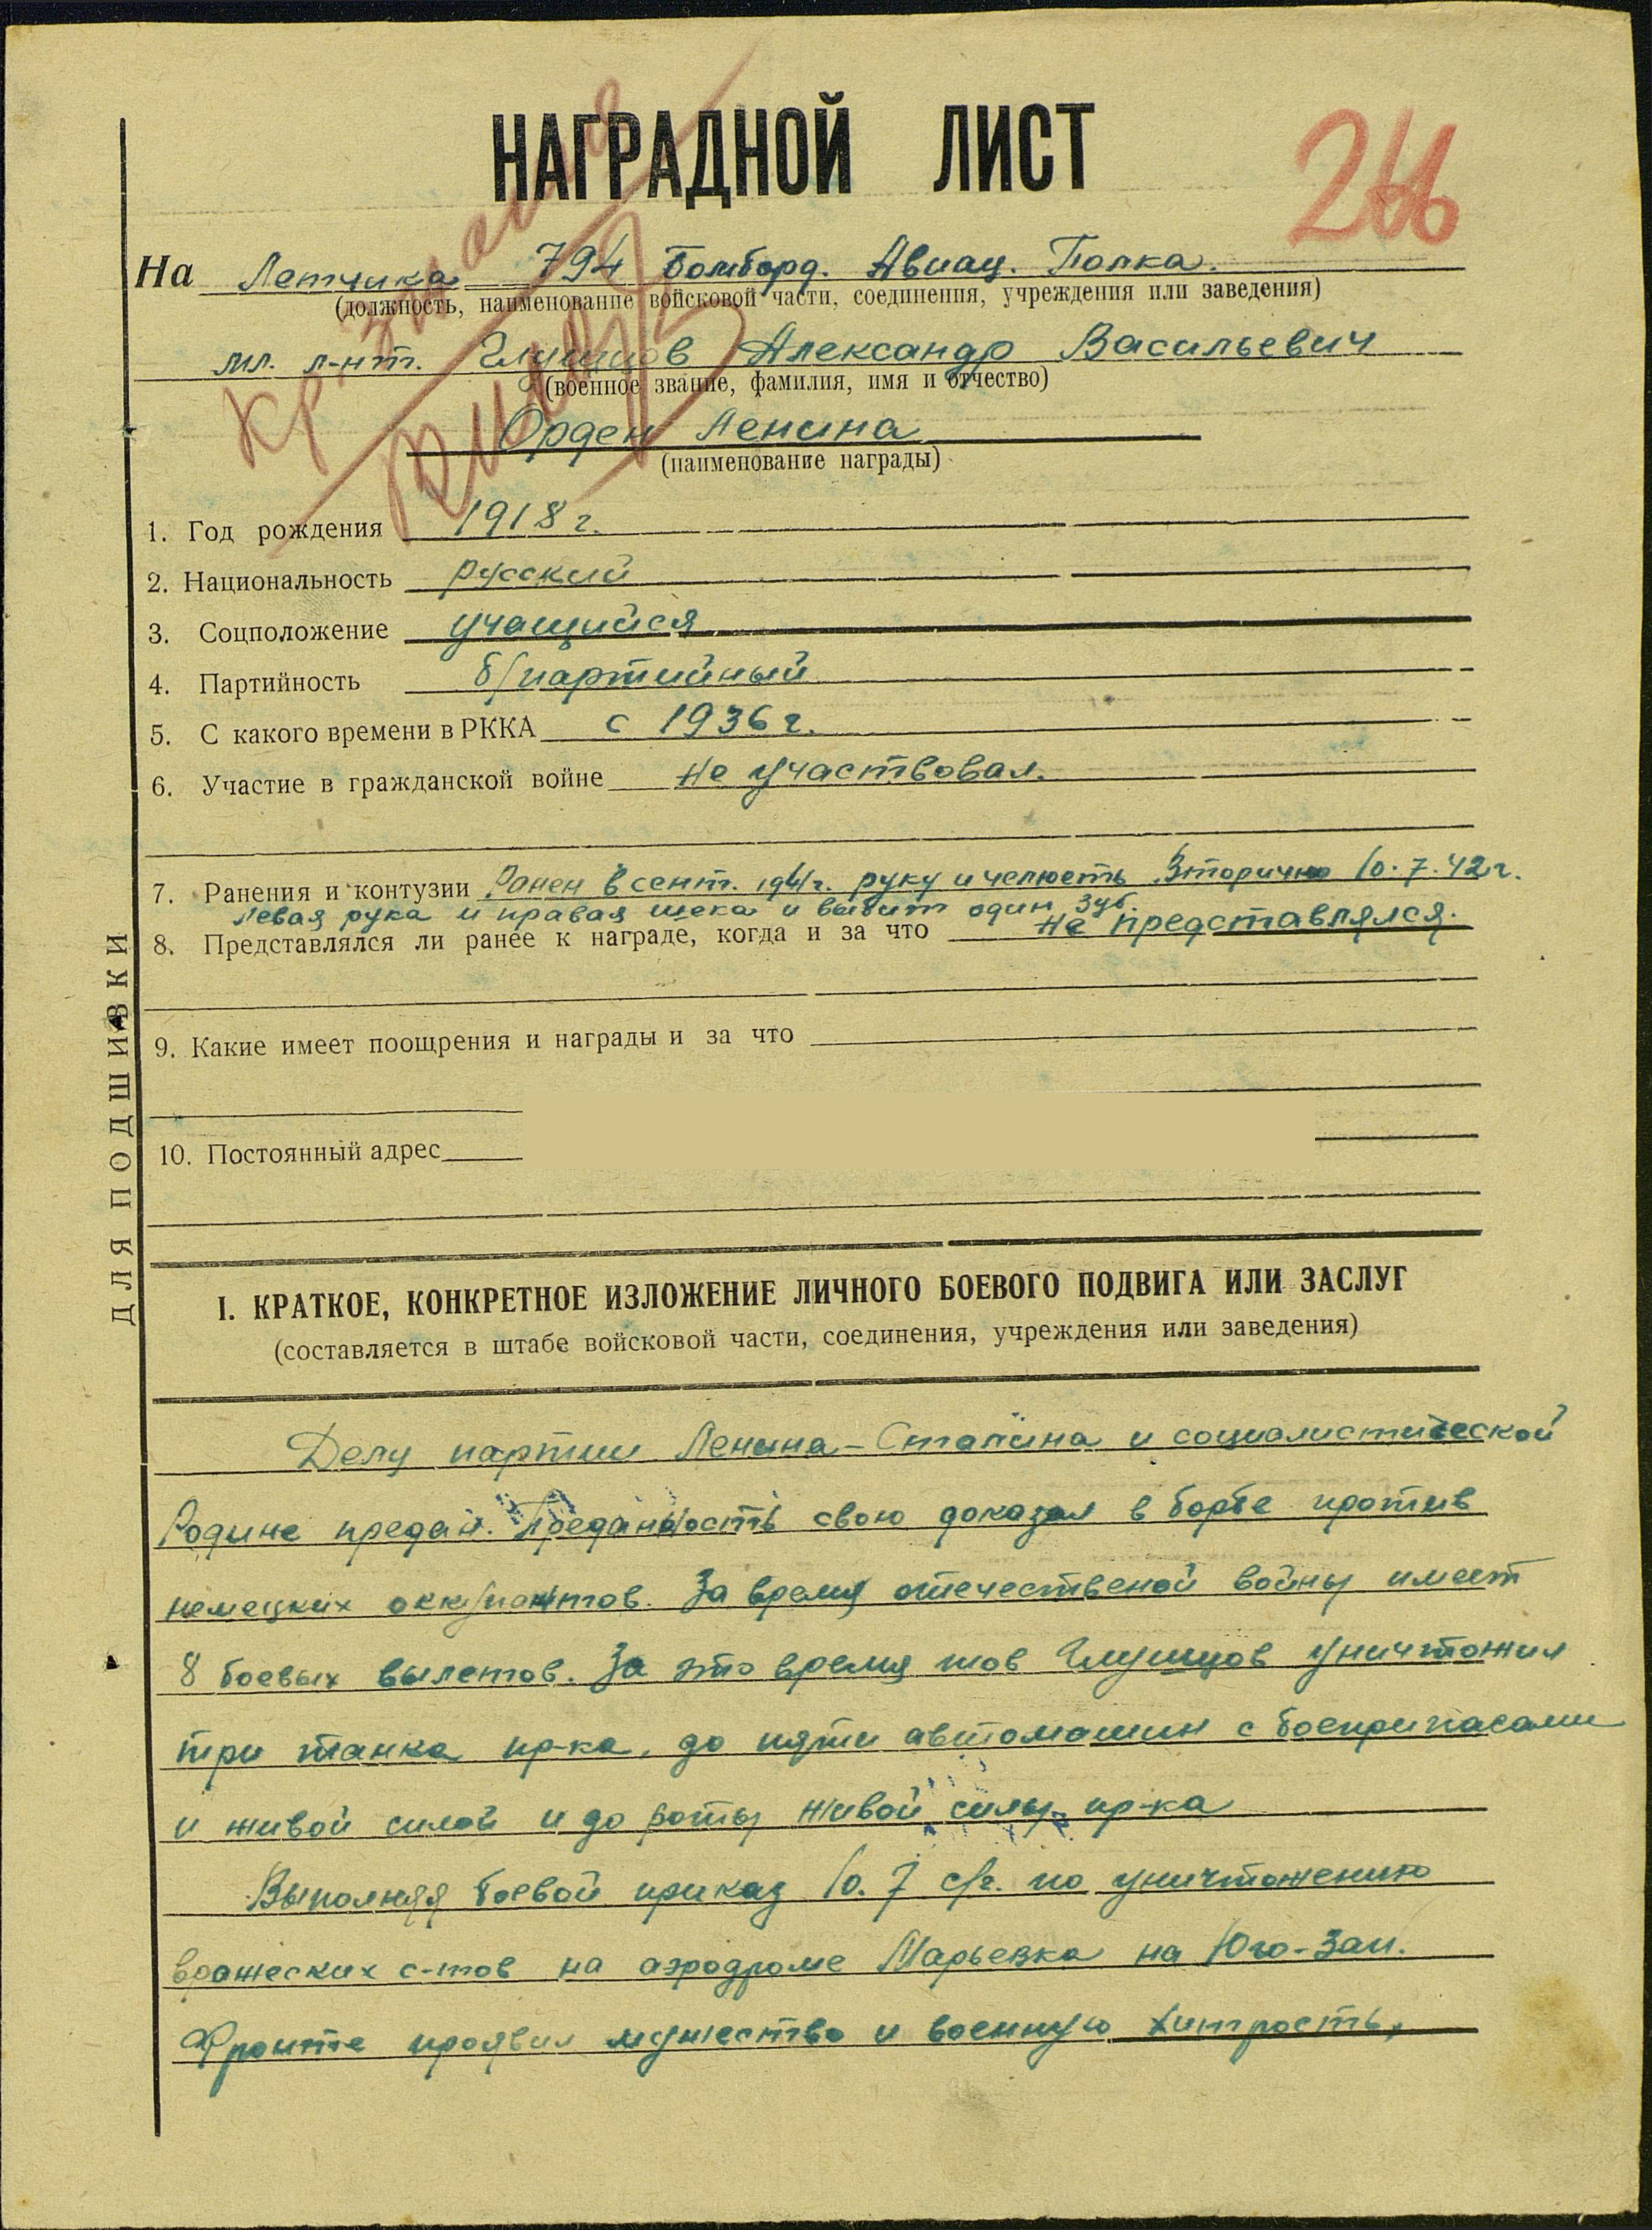 НАГРАДНОЙ ЛИСТ
На Летчика 794 Бомбард. Авиац. Полка.
(должность, наименование войсковой части, соединения, учреждения или заведения)
мл. л-нт. Глушцов Александр Васильевич
(военное звание, фамилия, имя и отчество)
Орден Ленина
(наименование награды)
Кр. знамя
1. Год рождения 1918 г.
2. Национальность русский
3. Соцположение учащийся
4. Партийность б/партийный
5. С какого времени в РККА с 1936 г.
6. Участие в гражданской войне не участвовал.
7. Ранения и контузии Ранен в сент. 1941 г. руку и челюсть Вторично 10.7.42 г.
левая рука и правая щека и выбит один зуб.
8. Представлялся ли ранее к награде, когда и за что не представлялся.
9. Какие имеет поощрения и награды и за что
10. Постоянный адрес
ДЛЯ ПОДШИВКИ
I. КРАТКОЕ, КОНКРЕТНОЕ ИЗЛОЖЕНИЕ ЛИЧНОГО БОЕВОГО ПОДВИГА ИЛИ ЗАСЛУГ
(составляется в штабе войсковой части, соединения, учреждения или заведения)
Делу партии Ленина-Сталина и социалистической
Родине предан. Преданность свою доказал в борбе против
немецких оккупантов. За время отечественой войны имеет
8 боевых вылетов. За это время тов Глушцов уничтожил
три танка пр-ка, до пяти автомашин с боеприпасами
и живой силой и до роты живой силы пр-ка
Выполняя боевой приказ 10.7 с/г. по уничтожению
вражеских с-тов на аэродроме Марьевка на Юго-Зап.
Фронте проявил мужество и военную хитрость,